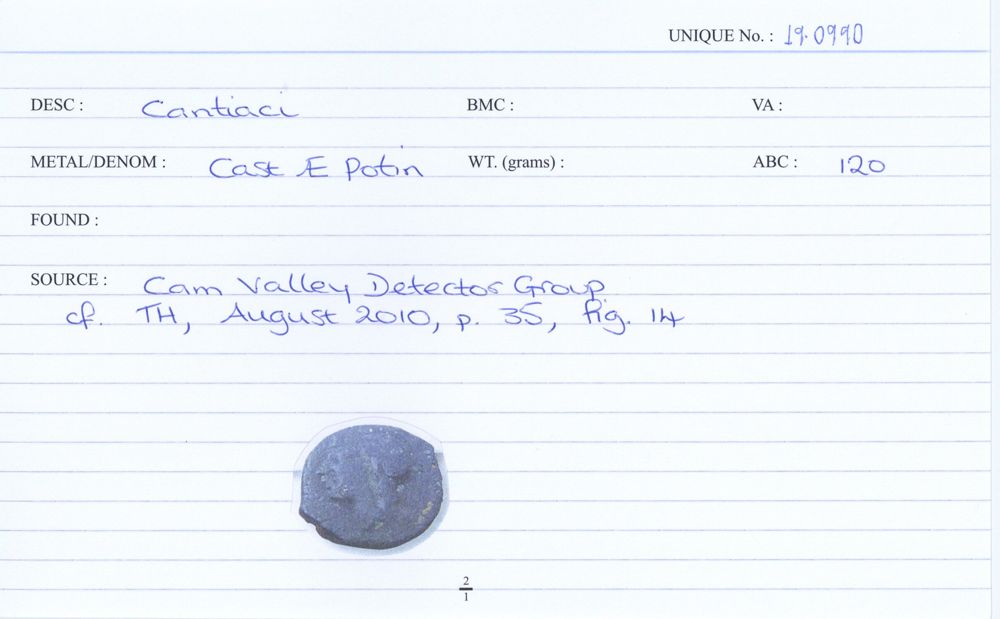 UNIQUE No. : 19.0990
DESC : Cantiaci BMC : VA :
METAL/DENOM : Cast Æ Potin WT. (grams) : ABC : 120
FOUND :
SOURCE : Cam Valley Detector Group
cf. TH, August 2010, p. 35, fig. 14
2
1